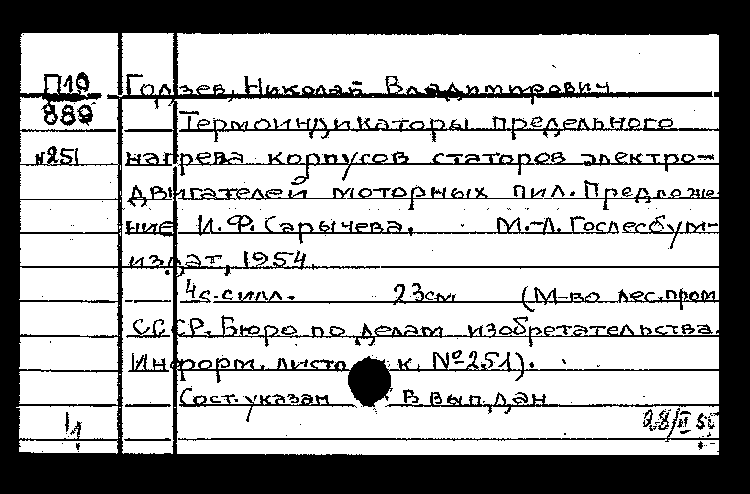 П19 Николай Владимирович
889 Термоиндикаторы предельного
№251 нагрева корпусов статоров электро-
двигателей моторных пил. Предложе-
ние И.Ф. Сарычева. М.-Л. Гослесбум-
издат, 1954.
4 с. с илл. 23 см (М-во лес. пром
СССР. Бюро по делам изобретательства.
Информ. к. №251).
Сост. указан В вып. дан
28/II 55